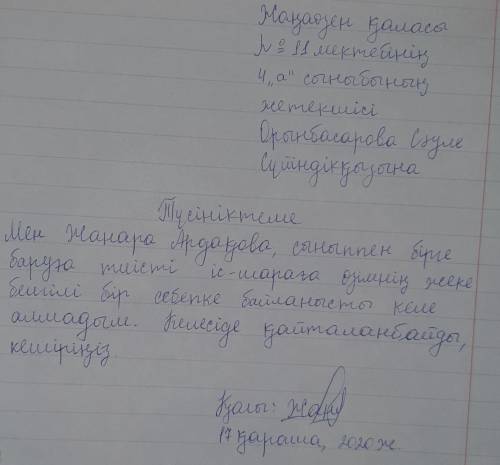 Жаңаөзен қаласы
№ 11 мектебінің
4 „а" сыныбының
жетекшісі
Орынбасарова Сәуле
Сүтіндікқызына
Түсініктеме
Мен Жанара Ардақова, сыныппен бірге
баруға тиісті іс-шараға өзімнің жеке
белгілі бір себепке байланысты келе
алмадым. Келесіде қайталанбайды,
кешіріңіз.
Қолы:
17 қараша, 2020ж.